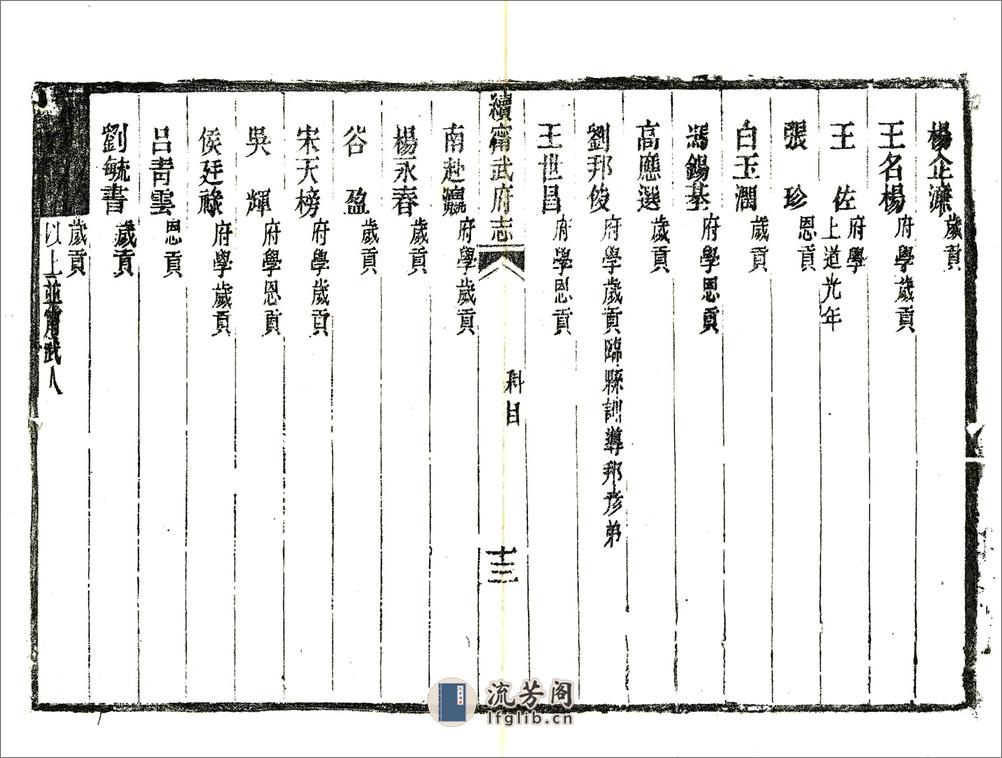 楊企濂歲貢
王名楊府學歲貢
王佐府學上道光年
張珍恩貢
白玉潤歲貢
馮錫基府學恩貢
高應選歲貢
劉邦俊府學歲貢臨縣訓導邦彥弟
王世昌府學恩貢
續甯武府志
科目
十三
南赴瀛府學歲貢
楊永春歲貢
谷盈歲貢
宋天榜府學歲貢
吳輝府學恩貢
侯廷祿府學歲貢
呂靑雲恩貢
劉毓書歲貢
歲貢以上並甯武人
流芳阁
lfglib.cn